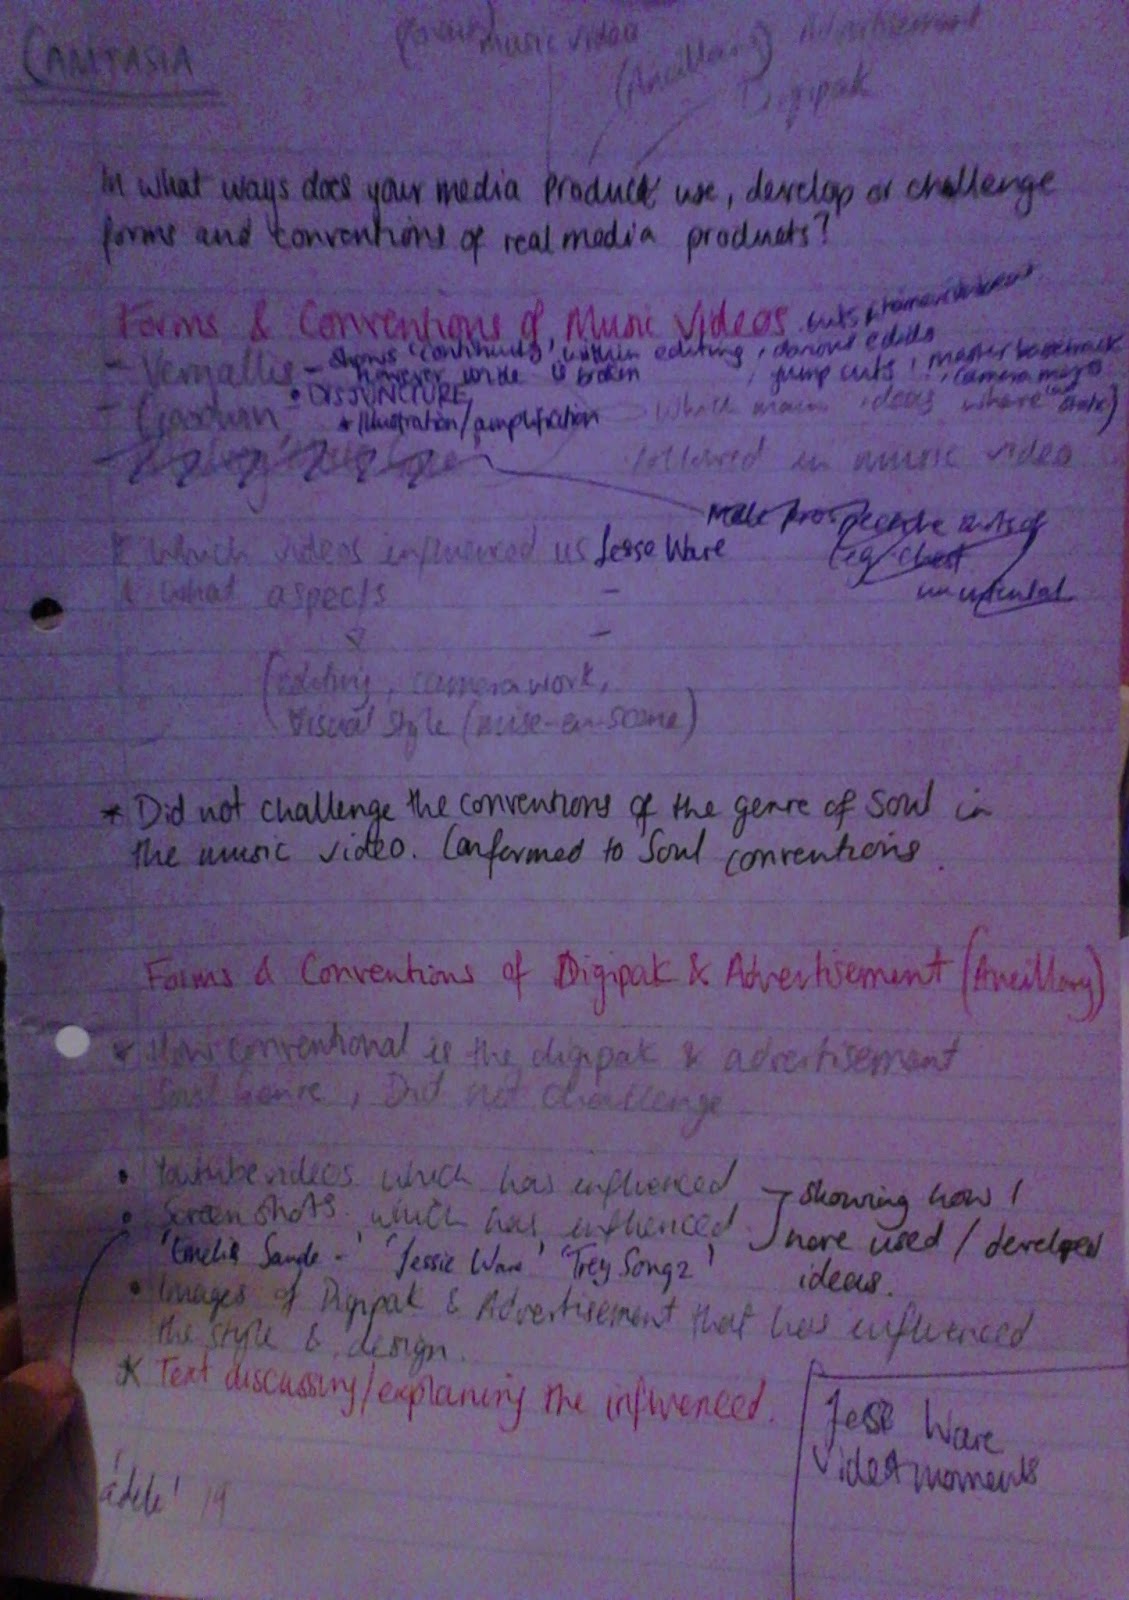 CAMTASIA
music video
Advertisement
(Ancillary)
Digipak
In what ways does your media product use, develop or challenge
forms and conventions of real media products?
Forms & Conventions of Music Videos
- Vernallis - shows 'continuity' within editing, various edits
however while is broken
jump cuts
• DISJUNCTURE
- Goodwin * Illustration/amplification
which main ideas where
followed in music video
* Which videos influenced us Jesse Ware
& what aspects
(editing, camera work,
visual style (mise-en-scene)
* Did not challenge the conventions of the genre of Soul in
the music video. Conformed to Soul conventions.
Forms & Conventions of Digipak & Advertisement (Ancillary)
* How conventional is the digipak & advertisement
Soul Genre, Did not challenge
• Youtube videos which has influenced
• Screen shots which has influenced
showing how I
have used / developed
ideas.
'Emelia Sande -' 'Jessie Ware' 'Trey Songz'
• Images of Digipak & Advertisement that has influenced
the style & design.
* Text discussing/explaining the influenced.
Jesse Ware
Video moments
'adele' 19